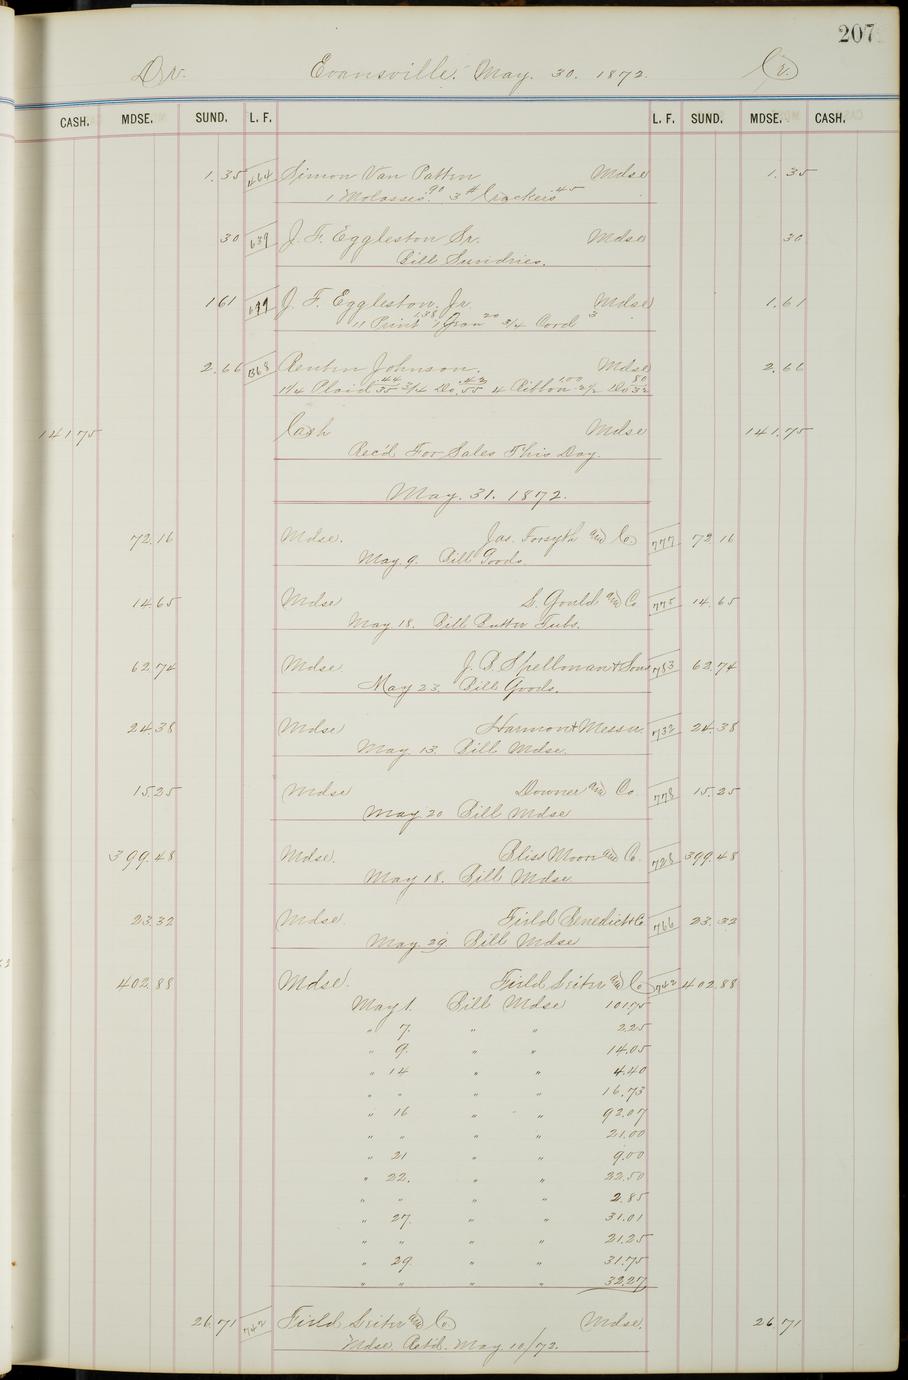 207
Dr. Evansville. May. 30. 1872. Cr.
CASH. MDSE. SUND. L. F. L. F. SUND. MDSE. CASH.
1.35 464 Simon Van Patten Mdse 1.35
1 Molasses .90 3# Crackers 45
30 639 J. F. Eggleston Sr. Mdse 30
Bill Sundries.
1 61 J. F. Eggleston. Jr. Mdse 1.61
11 Print 1.38 1 20 3/4 Cord 3
2.66 Johnson. Mdse 2.66
1 1/4 Plaid 35 .44 3/4 Do. 55 .42 4 Ribbon 1.00 2 1/2 Do 32 80
141 75 Cash Mdse 141.75
Rec'd For Sales This Day.
May. 31. 1872.
72.16 Mdse. Jas. Forsyth and Co 777 72 16
May 9. Bill Goods.
14.65 Mdse S. Gould and Co 775 14.65
May 18. Bill Butter Tubs.
62.74 Mdse J. B. Spellman & Sons 783 62.74
May 23. Bill Goods.
24.38 Mdse Harmon & 732 24.38
May. 13. Bill Mdse.
15.25 Mdse Downer and Co. 778 15.25
May 20 Bill Mdse
399.48 Mdse. Bliss Moon and Co. 728 399.48
May 18. Bill Mdse
23.32 Mdse Field Benedict & Co. 766 23.32
May. 29. Bill Mdse
402.88 Mdse. Field Leiter and Co 742 402.88
May 1. Bill Mdse 101.75
" 7. " " 2.25
" 9. " " 14.05
" 14 " " 4.40
" " " " 16.73
" 16 " " 92.07
" " " " 21.00
" 21 " " 9.00
" 22. " " 22.50
" " " " 2.85
" 27. " " 31.01
" " " " 21.25
" 29. " " 31.75
" " " " 32.27
26.71 742 Field Leiter and Co Mdse. 26 71
Mdse. Ret'd. May 10/72.